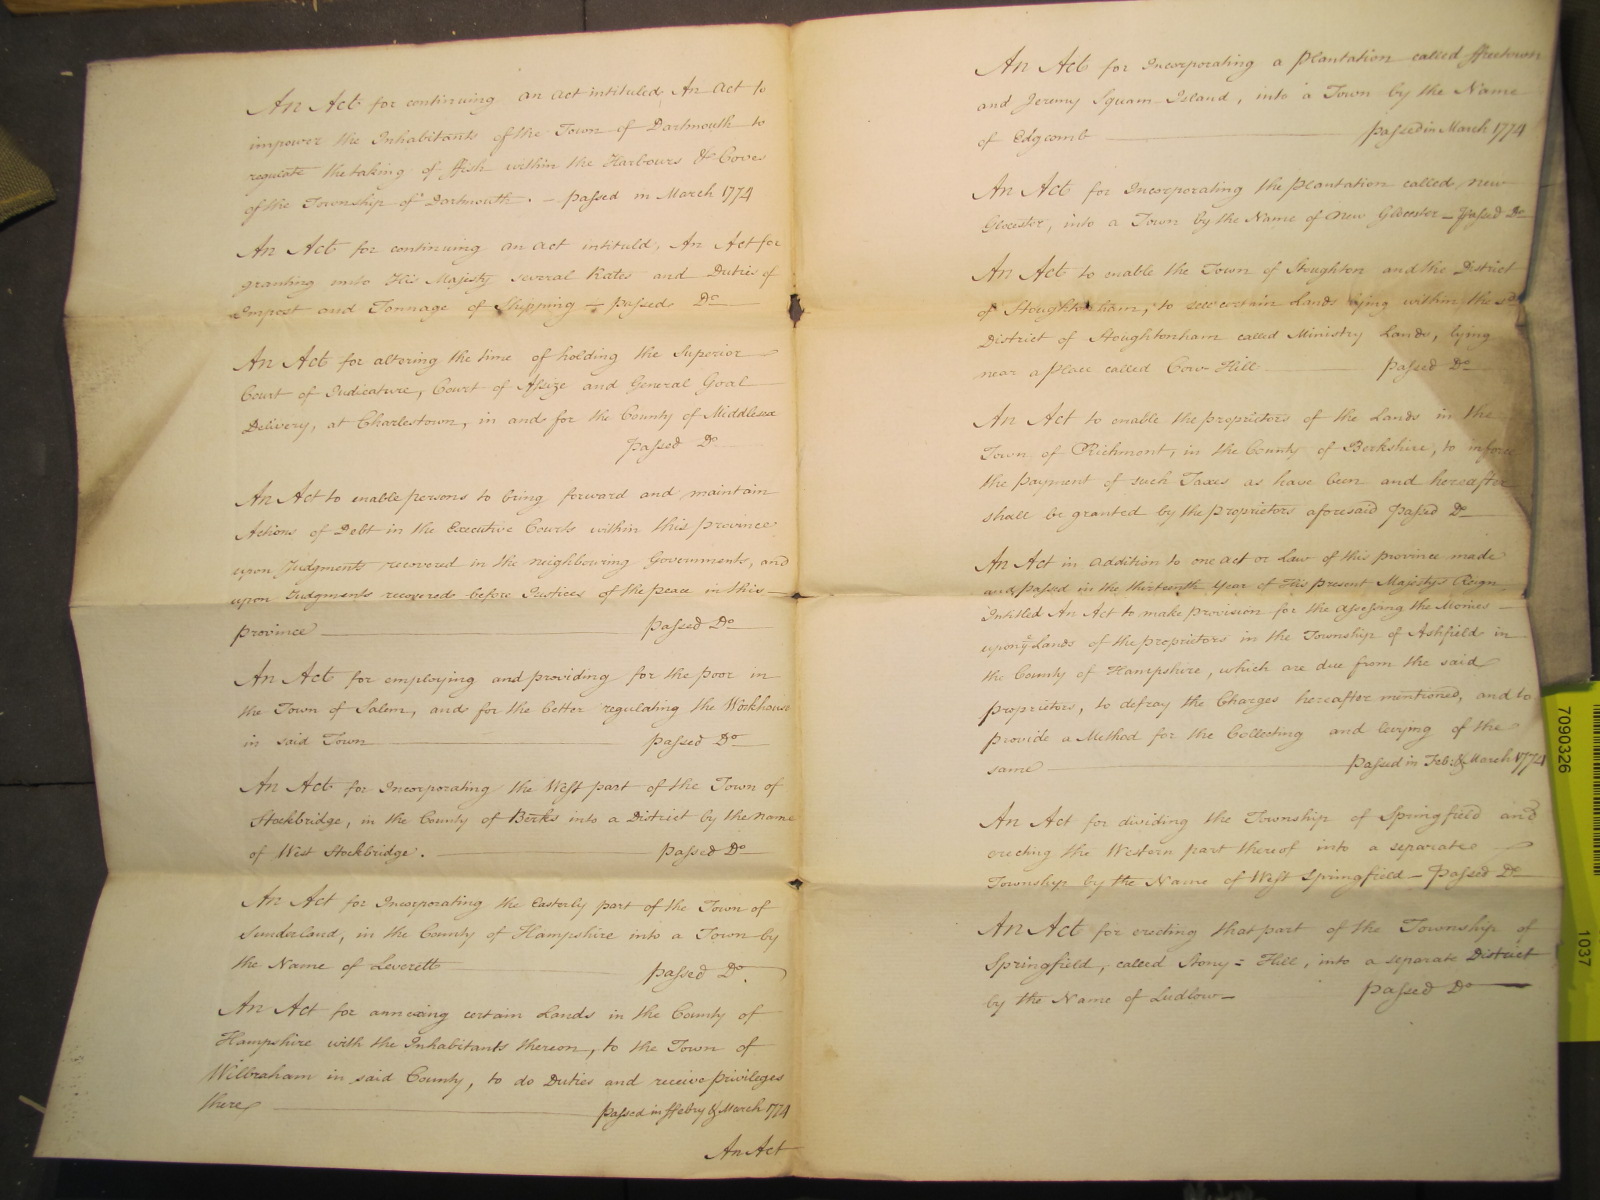 An Act for continuing an act intituled An Act to
impower the Inhabitants of the Town of Dartmouth to
regulate the taking of ffish within the Harbours & Coves
of the Township of Dartmouth. — passed in March 1774
An Act for continuing an act intituld, An Act for
granting unto His Majesty several Rates and Duties of
Impost and Tonnage of Shipping — passed Do
An Act for altering the time of holding the Superior
Court of Judicature, Court of Assize and General Goal
Delivery, at Charlestown, in and for the County of Middlesex
Passed Do
An Act to enable persons to bring forward and maintain
Actions of Debt in the Executive Courts within this province
upon Judgments recovered in the neighbouring Governments, and
upon Judgments recovered before Justices of the peace in this
province — passed Do
An Act for employing and providing for the poor in
the Town of Salem, and for the better regulating the Workhouse
in said Town — passed Do
An Act for Incorporating the West part of the Town of
Stockbridge, in the County of Berks into a District by the name
of West Stockbridge. — passed Do
An Act for Incorporating the Easterly part of the Town of
Sunderland, in the County of Hampshire into a Town by
the Name of Leverett — passed Do.
An Act for annexing certain Lands in the County of
Hampshire with the Inhabitants thereon, to the Town of
Wilbraham in said County, to do Duties and receive privileges
there — passed in ffebry & March 1774
An Act
An Act for Incorporating a plantation called ffreetown
and Jeremy Squam Island, into a Town by the Name
of Edgcomb — passed in March 1774
An Act for Incorporating the plantation called new
Glocester, into a Town by the Name of new Glocester — passed Do
An Act to enable the Town of Stoughton and the District
of Stoughtonham, to sell certain Lands lying within the sd
District of Stoughtonham called Ministry Lands, lying
near a place called Cow Hill — passed Do
An Act to enable the proprietors of the Lands in the
Town of Richmont, in the County of Berkshire, to inforce
the payment of such Taxes as have been and hereafter
shall be granted by the proprietors aforesaid passed Do
An Act in addition to one act or Law of this province made
and passed in the thirteenth Year of His present Majestys Reign
Intitled An Act to make provision for the assessing the Monies
upon ye Lands of the proprietors in the Township of Ashfield in
the County of Hampshire, which are due from the said
proprietors, to defray the Charges hereafter mentioned, and to
provide a Method for the Collecting and levying of the
same — passed in Feb: & March 1774
An Act for dividing the Township of Springfield and
erecting the Western part thereof into a separate
Township by the Name of West Springfield — passed Do
An Act for erecting that part of the Township of
Springfield, called Stony = Hill, into a separate District
by the Name of Ludlow — passed Do
7090326
1037